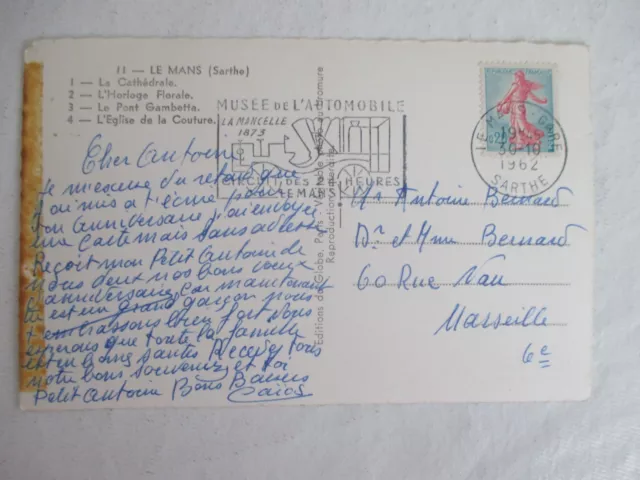 11 — LE MANS (Sarthe)
1 — La Cathédrale.
2 — L'Horloge Florale.
3 — Le Pont Gambetta.
4 — L'Eglise de la Couture.
MUSÉE DE L'AUTOMOBILE
LA MANCELLE
1873
CIRCUIT DES 24 HEURES
LE MANS
LE MANS GARE
19H
30-10
1962
SARTHE
Cher Antoine
Je m'escuse du retard que
j'ai mis a t'écrire pour
ton anniversaire j'ai envoyer
une carte mais sans adresse
Reçoit mon Petit Antoine de
nous deux nos bons voeux
d'anniversaire car maintenant
tu est un grand garçon nous
t embrassons bien fort nous
esperons que toute la famille
est en bonne santée Recevez tous
notre bons souvenirs et toi
Petit Antoine Bons Baisers
Editions du Globe, Paris - Véritable
Reproduction interdite
Mr Antoine Bernard
Dr et Mme Bernard
60 Rue Vau
Marseille
6e